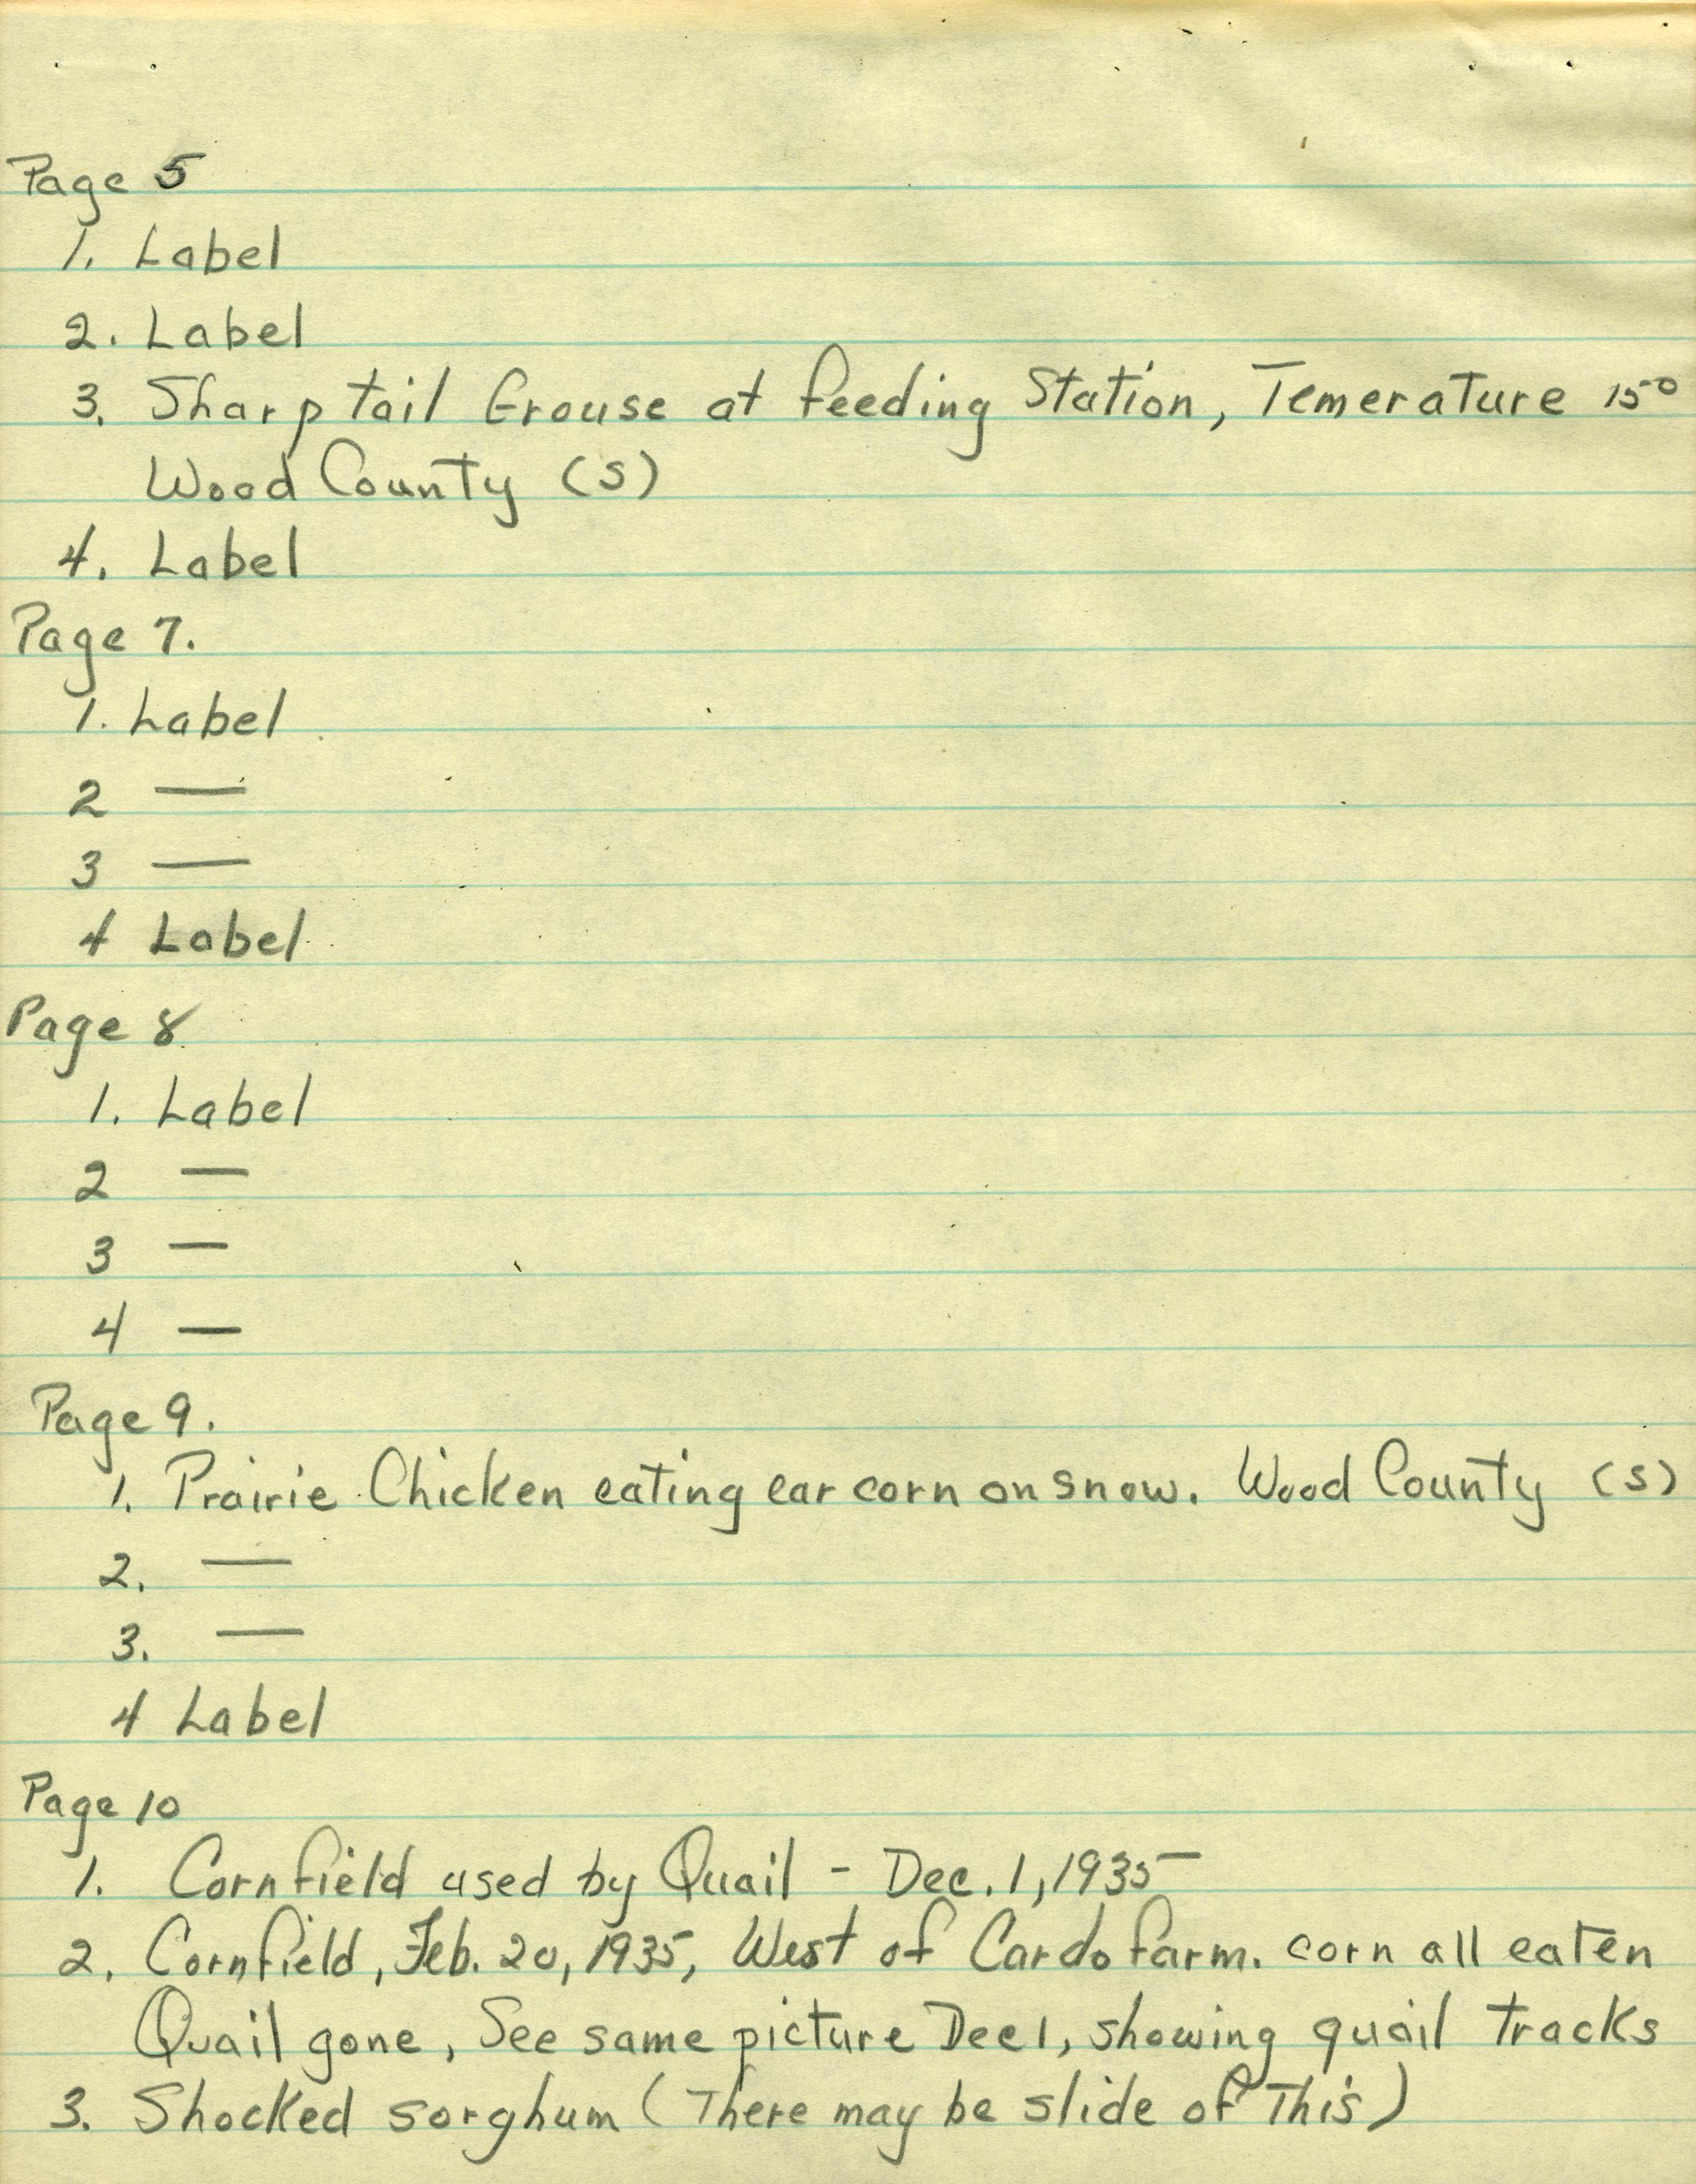 Page 5
1. Label
2. Label
3. Sharp tail Grouse at feeding Station, Temerature 15°
Wood County (S)
4. Label
Page 7.
1. Label
2 —
3 —
4 Label
Page 8
1. Label
2 —
3 —
4 —
Page 9.
1. Prairie Chicken eating ear corn on snow. Wood County (S)
2. —
3. —
4 Label
Page 10
1. Cornfield used by Quail - Dec. 1, 1935
2. Cornfield, Feb. 20, 1935, West of Cardo farm. corn all eaten
Quail gone, See same picture Dec 1, showing quail tracks
3. Shocked sorghum (There may be slide of This)